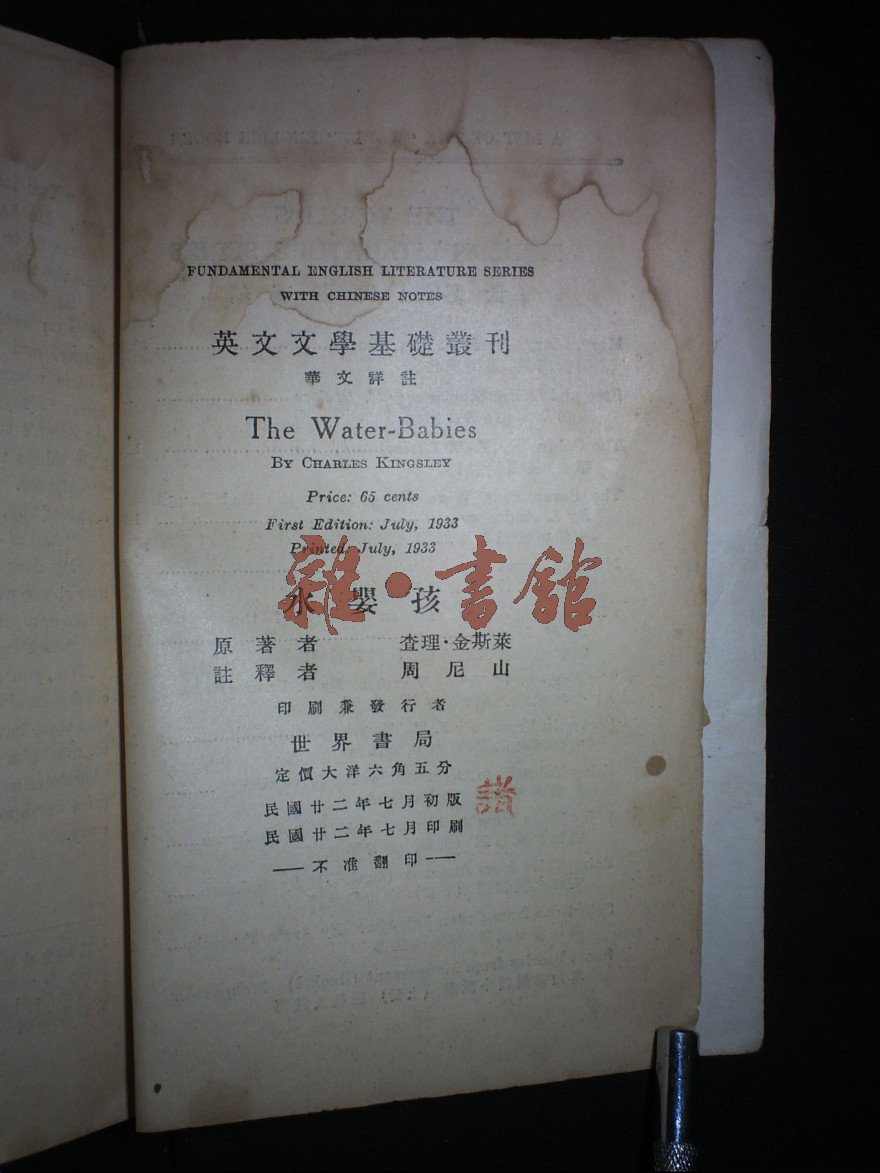 FUNDAMENTAL ENGLISH LITERATURE SERIES
WITH CHINESE NOTES
英文文學基礎叢刊
華文詳註
The Water-Babies
BY CHARLES KINGSLEY
Price: 65 cents
First Edition: July, 1933
Printed: July, 1933
雜·書館
水嬰孩
原著者 查理·金斯萊
註釋者 周尼山
印刷兼發行者
世界書局
定價大洋六角五分
民國廿二年七月初版
民國廿二年七月印刷
——不准翻印——